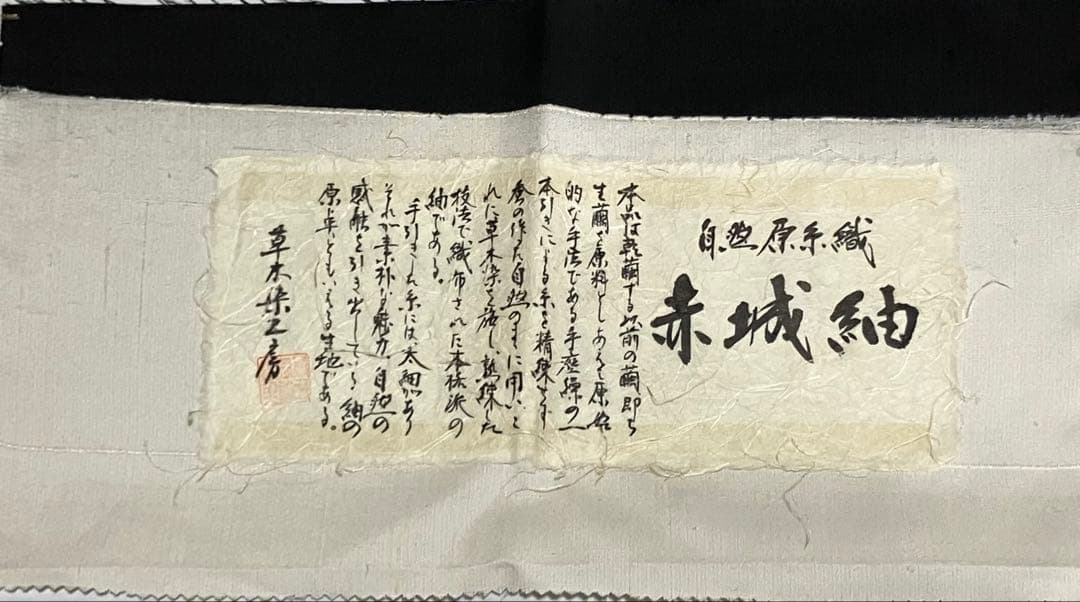 自然原糸織
赤城紬
本品は乾繭する以前の繭即ち
生繭を原料としあくまで原始
的な手法である手座繰の一
本引きによる糸を精練せず
蚕の作った自然のままに用いこ
れに草木染を施し、熟練した
技法で織布された本格派の
紬である。
手引きした糸には太細があり
それが素朴な魅力、自然の
感触を引き出している。紬の
原点ともいえる生地である。
草木染工房